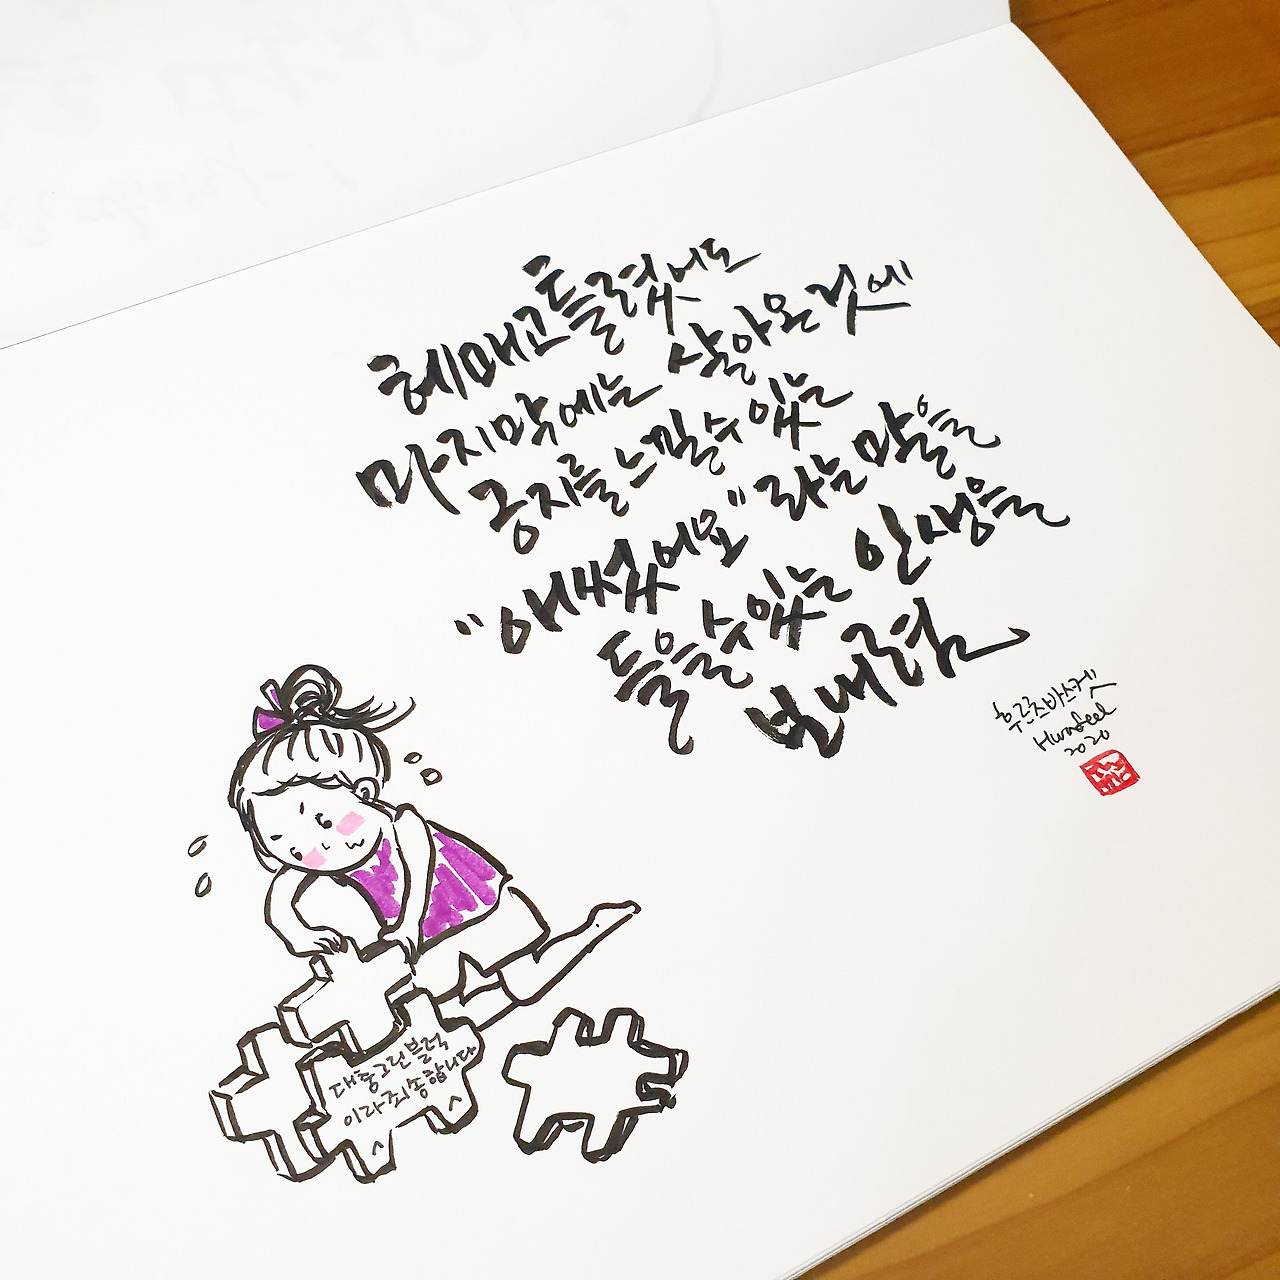 헤매고 흔들렸어도
마지막에는 살아온 것에
긍지를 느낄 수 있는
"애썼어요" 라는 말을
들을 수 있는 인생을
보내렴
후르츠바스켓
Hwafeel
2020
대충그린블럭
이라죄송합니다
^ ^